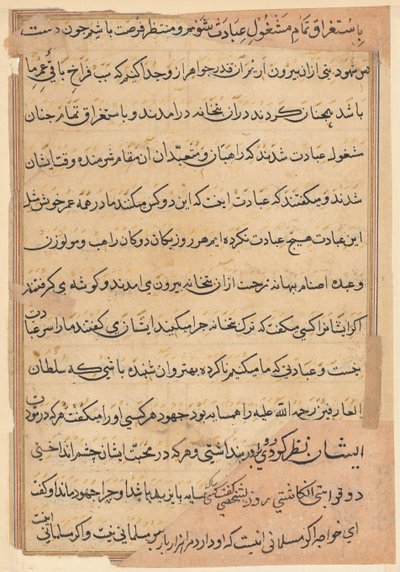 باستغراق تمام مشغول عبادت شویم و منتظر فرصت باشیم چون دست
می شود بتی ازان بیرون اریم ان قدر جواهر از وجدا کنیم که سبب فراخ باقی عمر ما
باشد همچنان کردند دران بتخانه درامدند و باستغراق تمام چنان
مشغول عبادت شدند که راهبان و متعبدان ان مقام شرمنده وقت ایشان
شدند و میگفتند که عبادت اینست که این دو کس میکنند ما در همه عمر خویش مثل
این عبادت هیچ عبادت نکرده ایم هر روز یکان دوکان راهب و
وعبده اصنام بهانه زحمت ازان بتخانه بیرون می امدند و گوشه می گرفتند
اگر ایشانرا کسی میگفت که ترک بتخانه چرا میکنید ایشان می گفتند ما را سر عبادت
نیست و عبادتی که ما میکنیم ناکرده بهتر وان شنیده باشی که سلطان
العارفین رحمة الله علیه را همسایه بود جهود هر کسی او را میگفت هر که در
ایشان بنظر کردی بنداشتی و هر که در صحبت ایشان چشم انداختی
دو قرابتی انکاشتی روزی شخصی گفت کسی که همسایه بایزید باشد او چرا جهود ماند او گفت
ای خواجه اگر مسلمانی اینست که او دارد مرا هزار بار سر مسلمانی نیست و اگر مسلمانی اینست